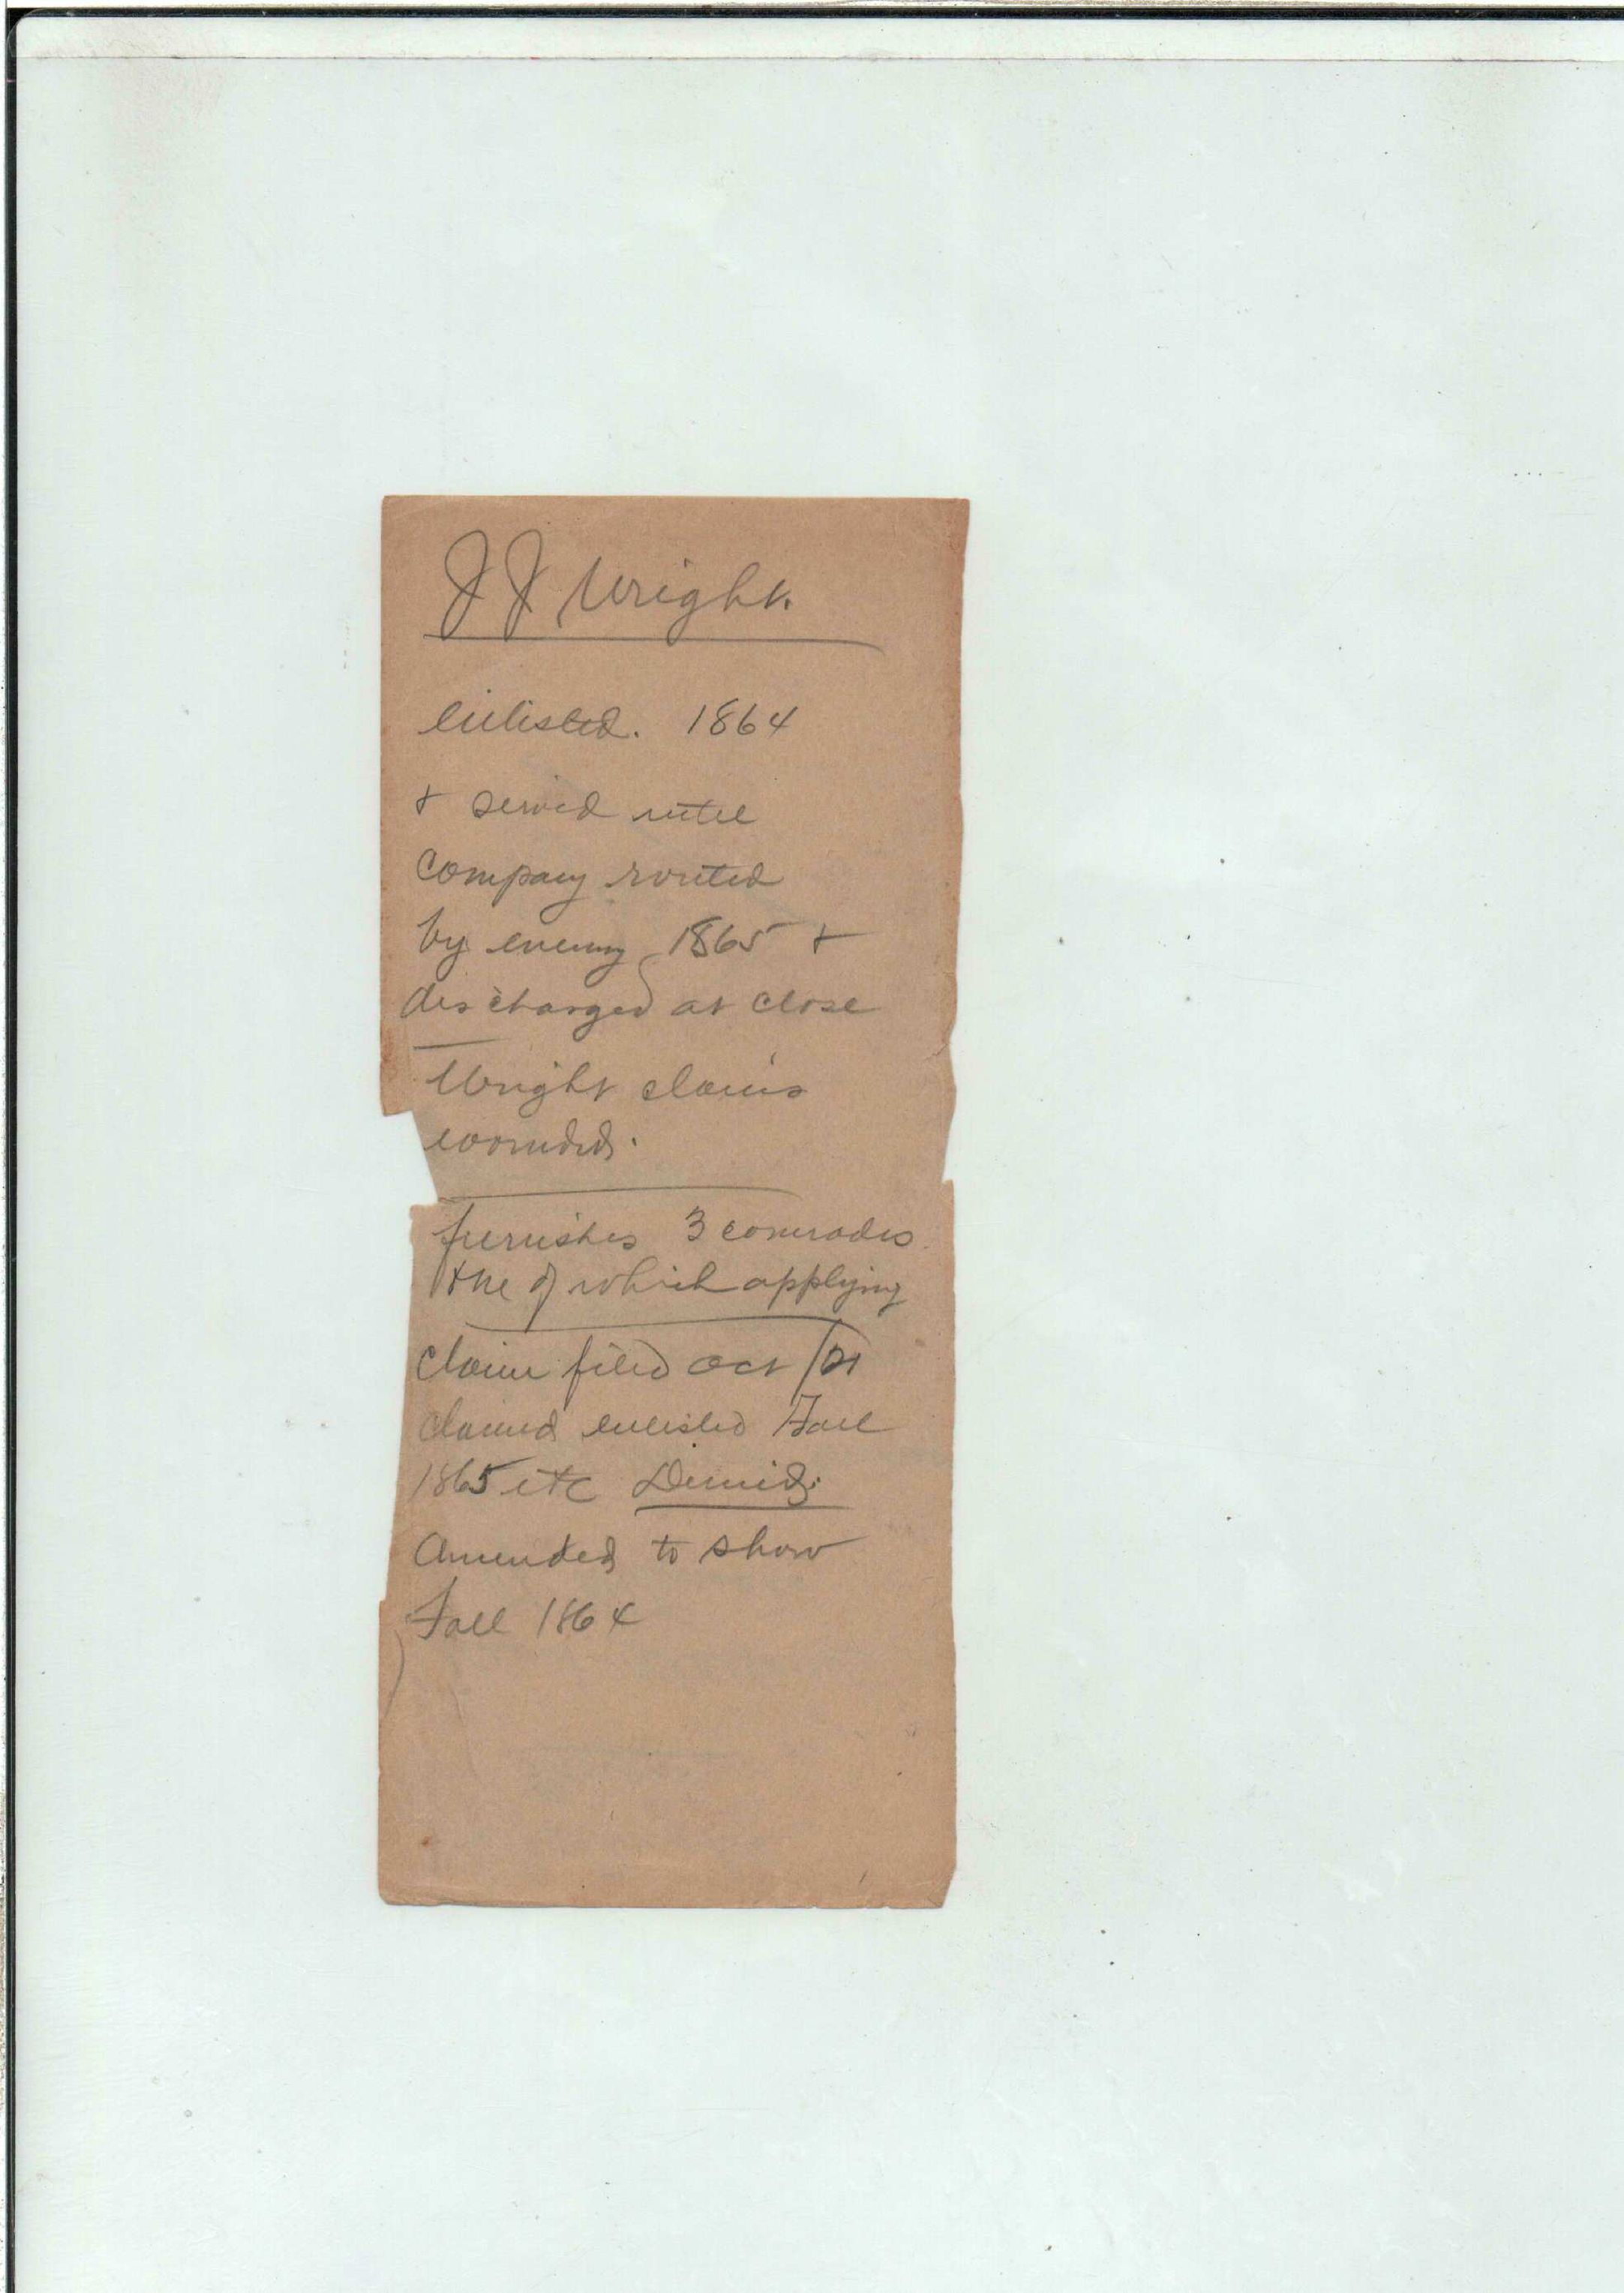 J J Wright.
enlisted. 1864
& served until
company routed
by enemy 1865 &
discharged at close
Wright claims
wounded.
furnishes 3 comrades
of which applying
claim filed Oct /21
Claimed enlisted Fall
1865 etc Denied.
Amended to show
Fall 1864